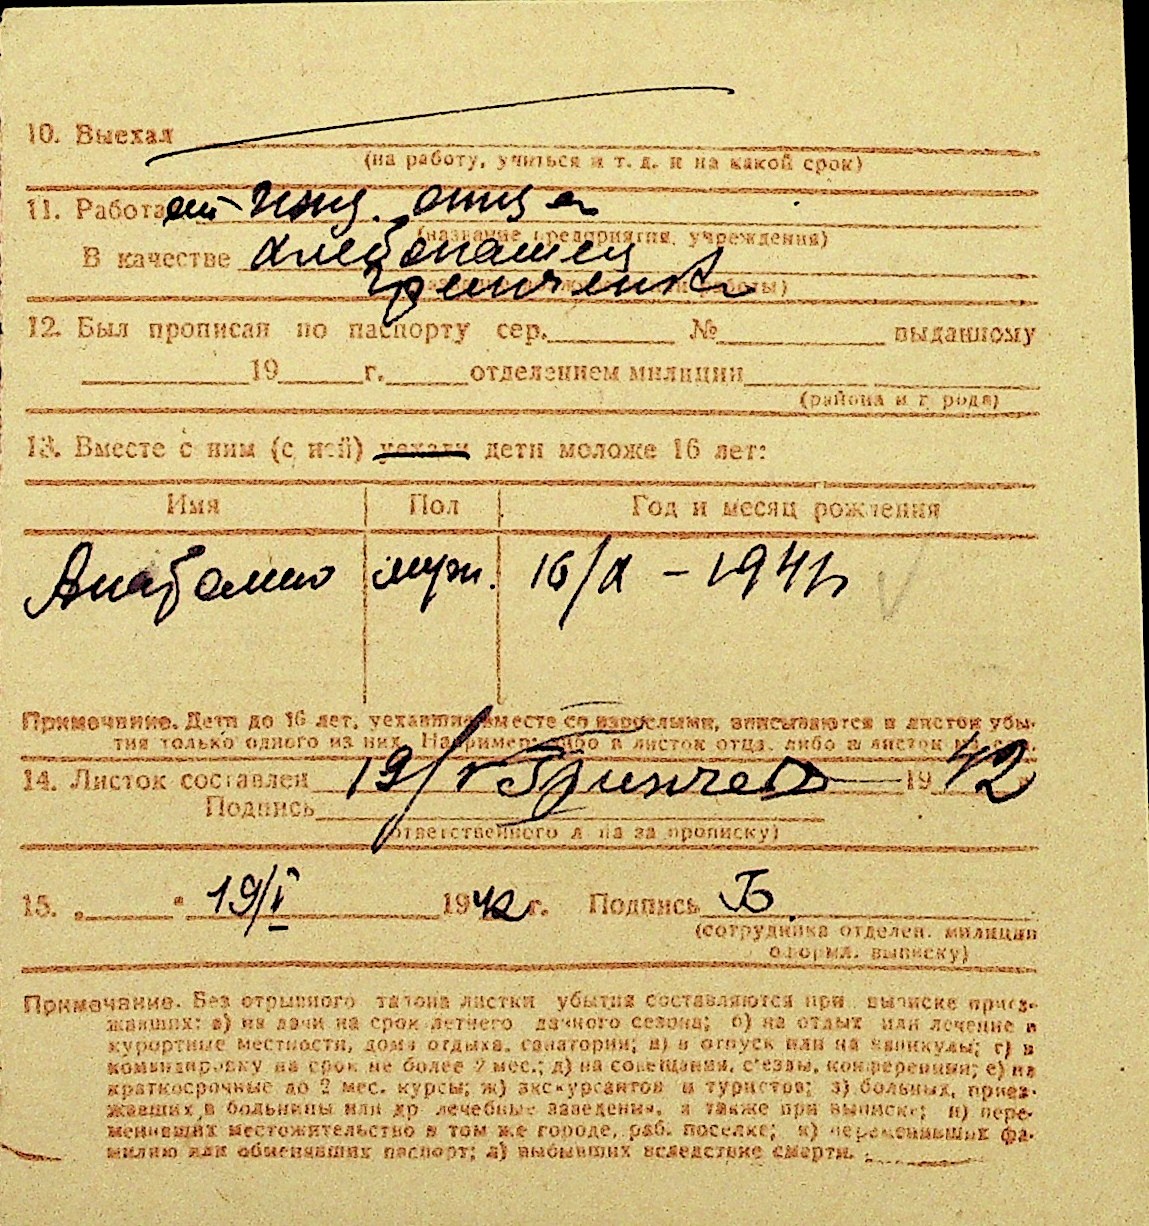 10. Выехал
(на работу, учиться и т. д. и на какой срок)
11. Работа
(название предприятия, учреждения)
В качестве хлебопашец
12. Был прописан по паспорту сер. № выданному
19 г. отделением милиции
(района и города)
13. Вместе с ним (с ней) уехали дети моложе 16 лет:
Имя Пол Год и месяц рождения
муж. 16/X – 1941
Примечание. Дети до 16 лет, уехавшие вместе со взрослыми, вписываются в листок убы-
тия только одного из них. Например: либо в листок отца, либо в листок
14. Листок составлен 19/I 1942
Подпись
(ответственного л па за прописку)
15. „ " 19/I 1942 г. Подпись Б
(сотрудника отделен. милиции
оформл. выписку)
Примечание. Без отрывного талона листки убытия составляются при выписке приез-
жавших: а) на дачи на срок летнего дачного сезона; б) на отдых или лечение в
курортные местности, дома отдыха, санатории; в) в отпуск или на каникулы; г) в
командировку на срок не более 2 мес.; д) на совещания, с'езды, конференции; е) на
краткосрочные до 2 мес. курсы; ж) экскурсантов и туристов; з) больных, приез-
жавших в больницы или др лечебные заведения, а также при выписке; и) пере-
менивших местожительство в том же городе, раб. поселке; к) переменивших фа-
милию или обменявших паспорт; л) выбывших вследствие смерти.